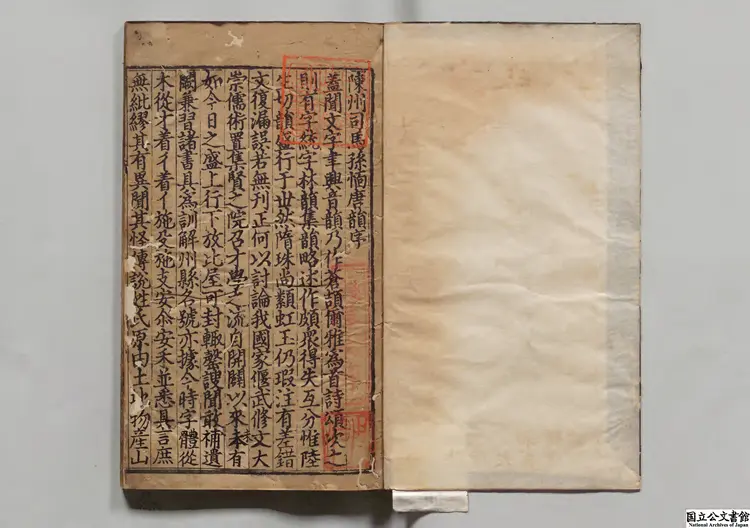 陳州司馬孫愐唐韻序
蓋聞文字聿興音韻乃作蒼頡爾雅為首詩頌次之
則有字統字林韻集韻略述作頗衆得失互分惟陸
生切韻盛行于世然隋珠尚纇虹玉仍瑕注有差錯
文復漏誤若無刊正何以討論我國家偃武修文大
崇儒術置集賢之院召才學之流自開闢以來未有
如今日之盛上行下放比屋可封輙罄謏聞敢補遺
闕兼習諸書具為訓解州縣名號亦據今時字體從
木從才着彳着亻施殳施支安尒安禾並悉具言庶
無紕繆其有異聞奇怪傳說姓氏原由土地物產山
国立公文書館
National Archives of Japan